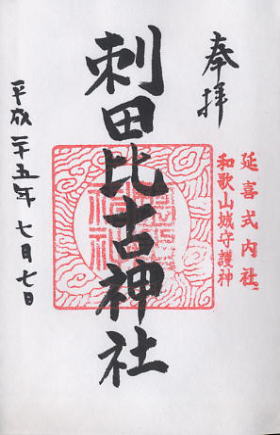 奉拝
延喜式内社
和歌山城守護神
刺田比古神社
平成二十五年七月七日